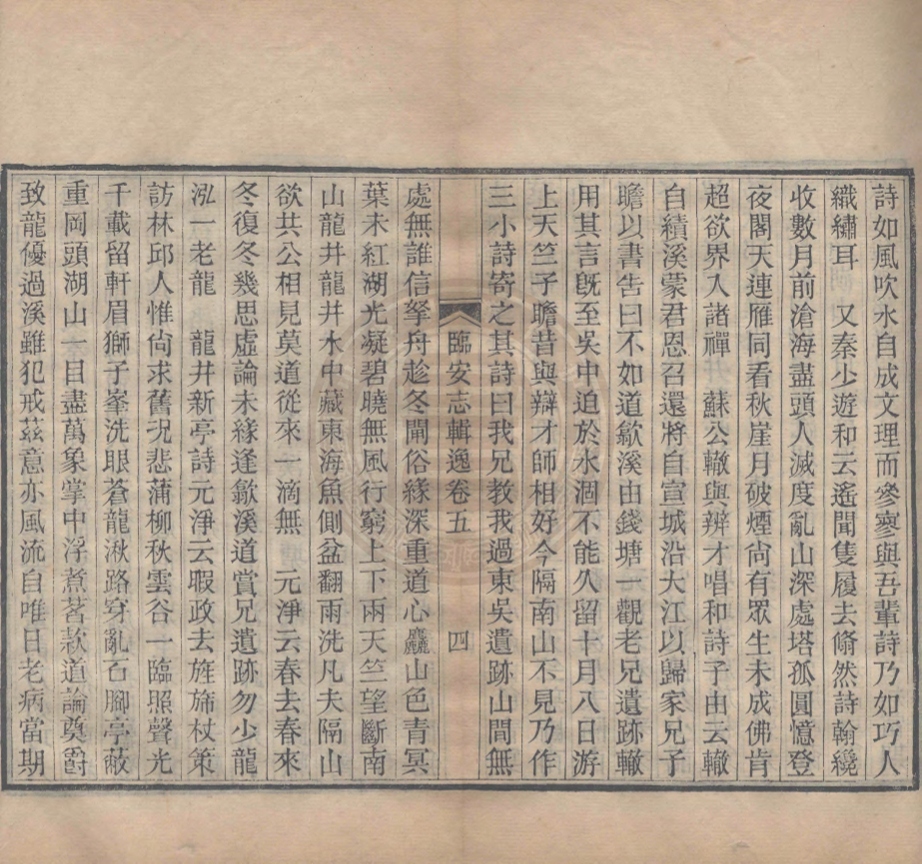 詩如風吹水自成文理而參寥與吾輩詩乃如巧人
織繡耳　又秦少遊和云遙聞隻履去翛然詩翰纔
收數月前滄海盡頭人滅度亂山深處塔孤圓憶登
夜閣天連雁同看秋崖月破煙尙有眾生未成佛肯
超欲界入諸禪　蘇公轍與辨才唱和詩子由云轍
自績溪蒙君恩召還將自宣城沿大江以歸家兄子
瞻以書告曰不如道歙溪由錢塘一觀老兄遺跡轍
用其言旣至吳中迫於水涸不能久留十月八日游
上天竺子瞻昔與辯才師相好今隔南山不見乃作
三小詩寄之其詩曰我兄教我過東吳遺跡山間無
臨安志輯逸卷五　四
處無誰信拏舟趁冬閘俗緣深重道心麤山色青冥
葉未紅湖光凝碧曉無風行窮上下兩天竺望斷南
山龍井龍井水中藏東海魚側盆翻雨洗凡夫隔山
欲共公相見莫道從來一滴無　元淨云春去春來
冬復冬幾思虛論未緣逢歙溪道賞兄遺跡勿少龍
泓一老龍　龍井新亭詩元淨云暇政去旌旆杖策
訪林邱人惟尙求舊況悲蒲柳秋雲谷一臨照聲光
千載留軒眉獅子峯洗眼蒼龍湫路穿亂石腳亭蔽
重岡頭湖山一目盡萬象掌中浮煮茗款道論奠爵
致龍優過溪雖犯戒茲意亦風流自唯日老病當期